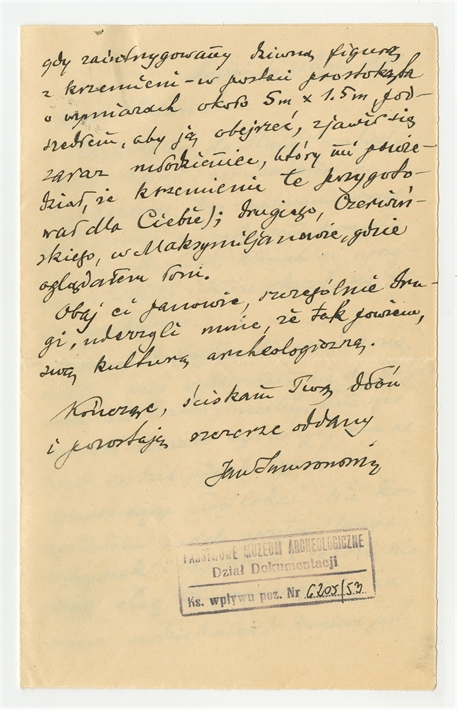 gdy zaintrygowany dziwną figurą
z krzemieni – w postaci prostokąta
o wymiarach około 5m x 1.5m, pod-
szedłem, aby ją obejrzeć, zjawił się
zaraz młodzieniec, który mi powie-
dział, że krzemienie te przygoto-
wał dla Ciebie); drugiego, Czerwiń-
skiego, w Maksymiljanowie, gdzie
oglądałem
Obaj ci panowie, szczególnie dru-
gi, uderzyli mnie, że tak powiem,
swą kulturą archeologiczną.
Kończąc, ściskam Twą dłoń
i pozostaję szczerze oddany
Jan
PAŃSTWOWE MUZEUM ARCHEOLOGICZNE
Dział Dokumentacji
Ks. wpływu poz. Nr 6205/53